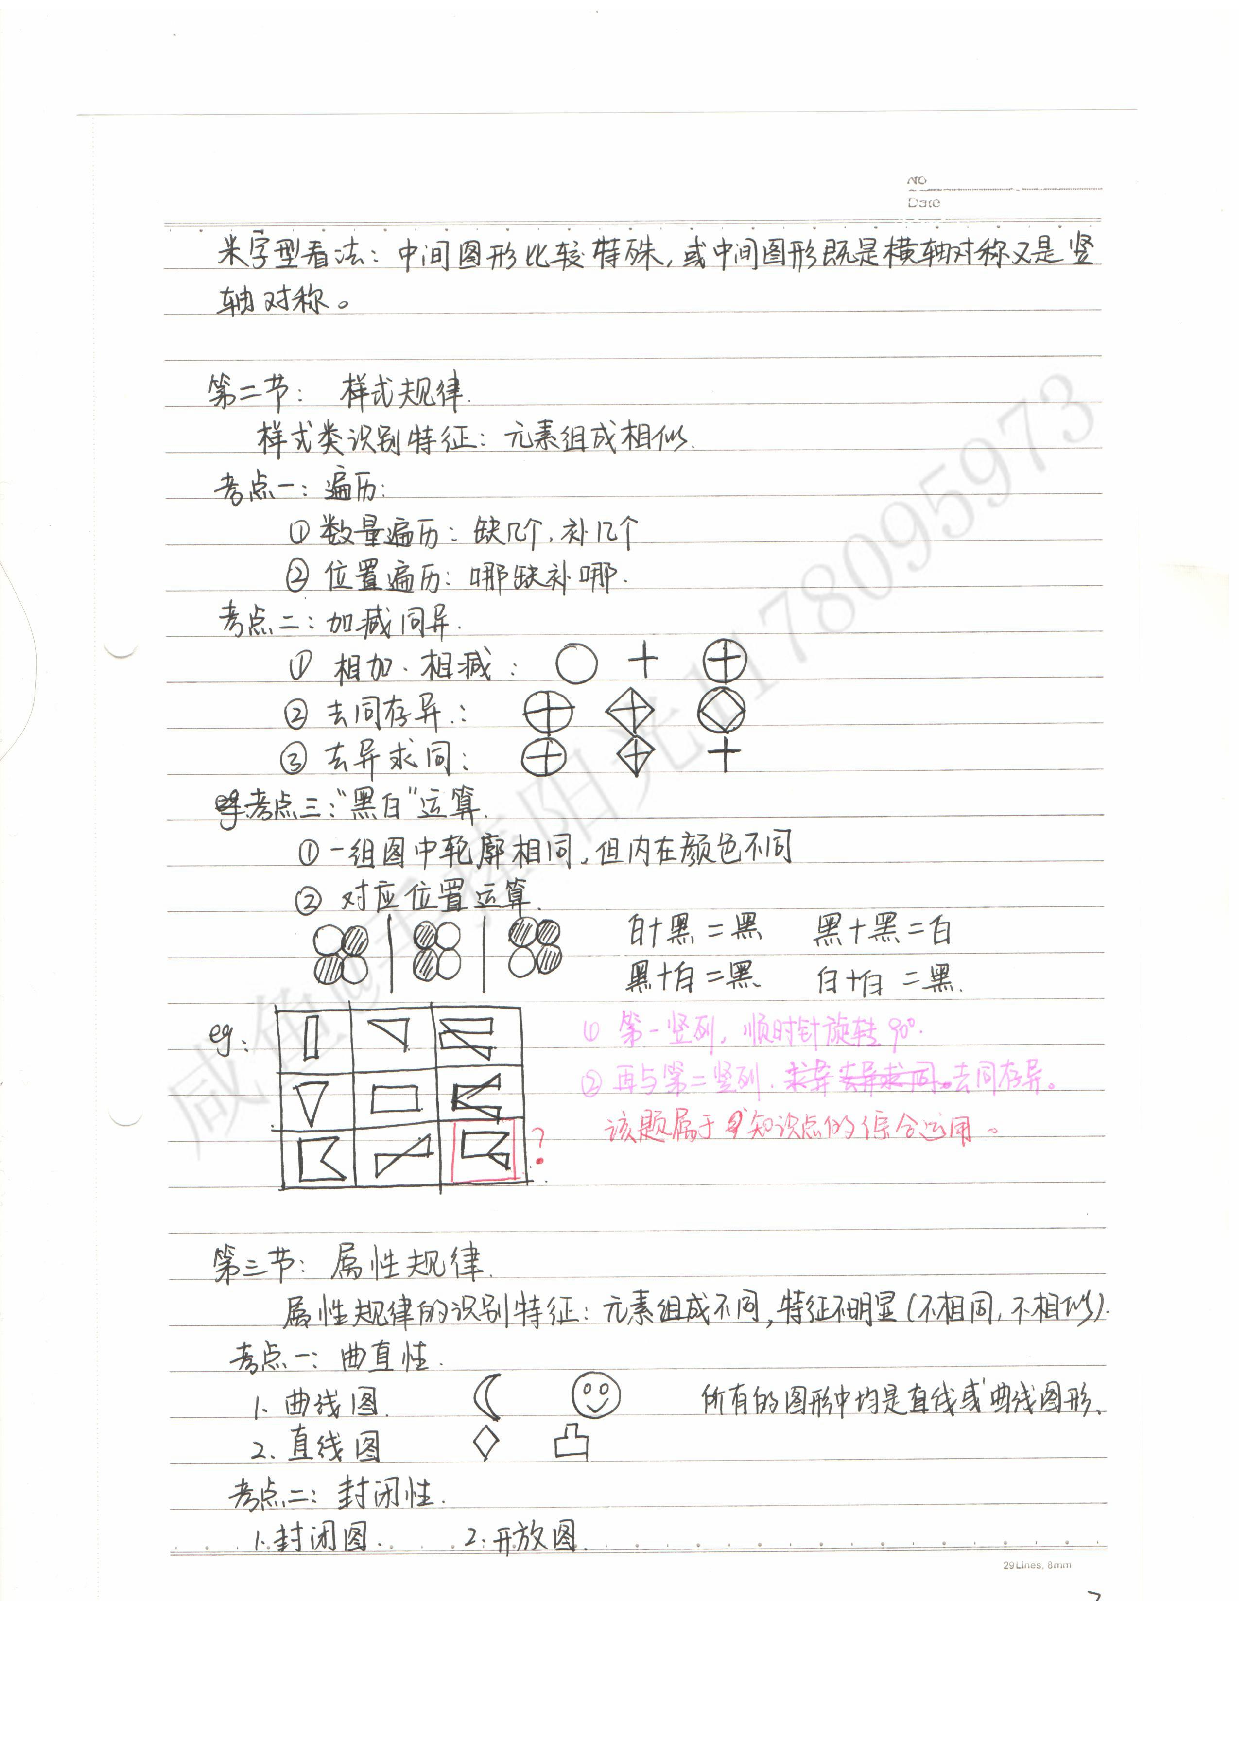 NO
Date
米字型看法：中间图形比较特殊，或中间图形既是横轴对称又是竖
轴对称。
第二节： 样式规律.
样式类识别特征：元素组成相似.
考点一：遍历：
① 数量遍历：缺几个，补几个
② 位置遍历：哪缺补哪.
考点二：加减同异.
① 相加、相减：
② 去同存异：
③ 去异求同：
考点三：“黑白”运算.
① 一组图中轮廓相同，但内在颜色不同
② 对应位置运算.
白+黑=黑 黑+黑=白
黑+白=黑 白+白=黑.
eg：
① 第一竖列，顺时针旋转90°.
② 再与第二竖列，求异去异求同。去同存异。
?
该题属于知识点的综合运用。
第三节：属性规律.
属性规律的识别特征：元素组成不同，特征不明显（不相同，不相似）.
考点一：曲直性.
1、曲线图. 所有的图形中均是直线或曲线图形、
2、直线图
考点二：封闭性.
1.封闭图. 2.开放图.
29Lines, 8mm
7
咸鱼@手捧阳光1178095973